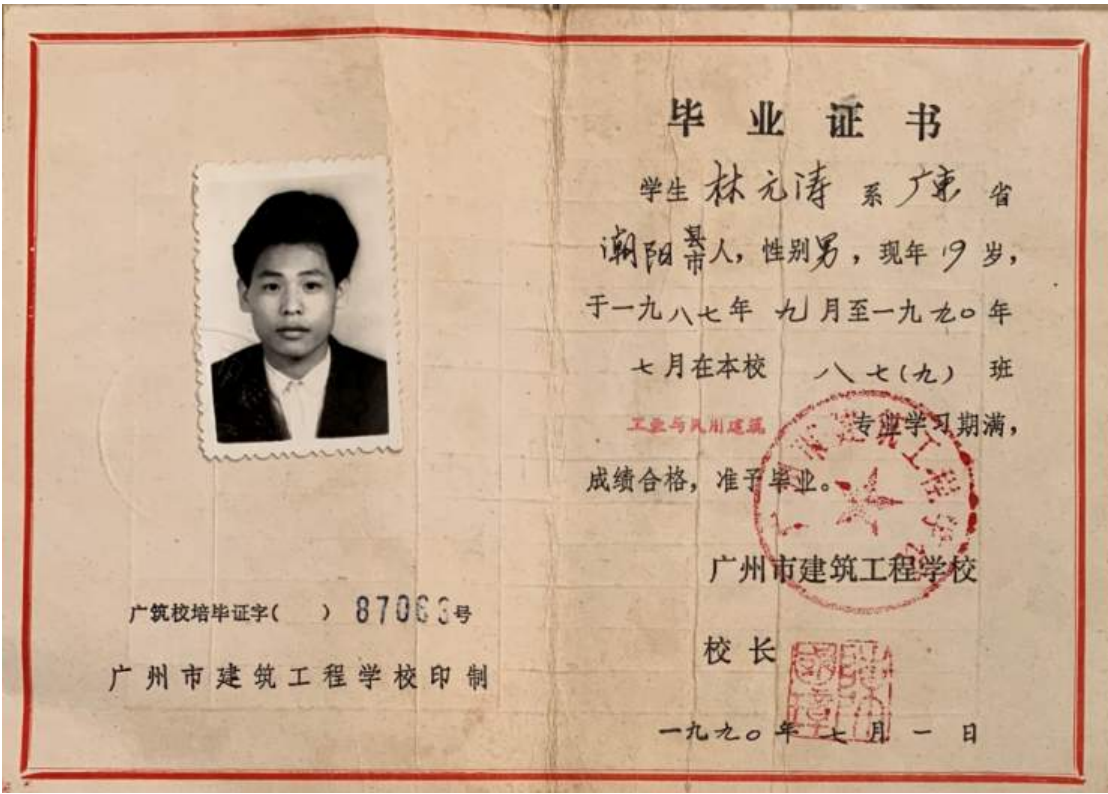 毕业证书
学生 林元涛 系 广东 省
潮阳县市人，性别男，现年19岁，
于一九八七年 九月至一九九〇年
七月在本校 八七(九) 班
工业与民用建筑 专业学习期满，
成绩合格，准予毕业。
广州市建筑工程学校
广州市建筑工程学校
校长
一九九〇年 七月一日
广筑校培毕证字( ) 87063号
广州市建筑工程学校印制